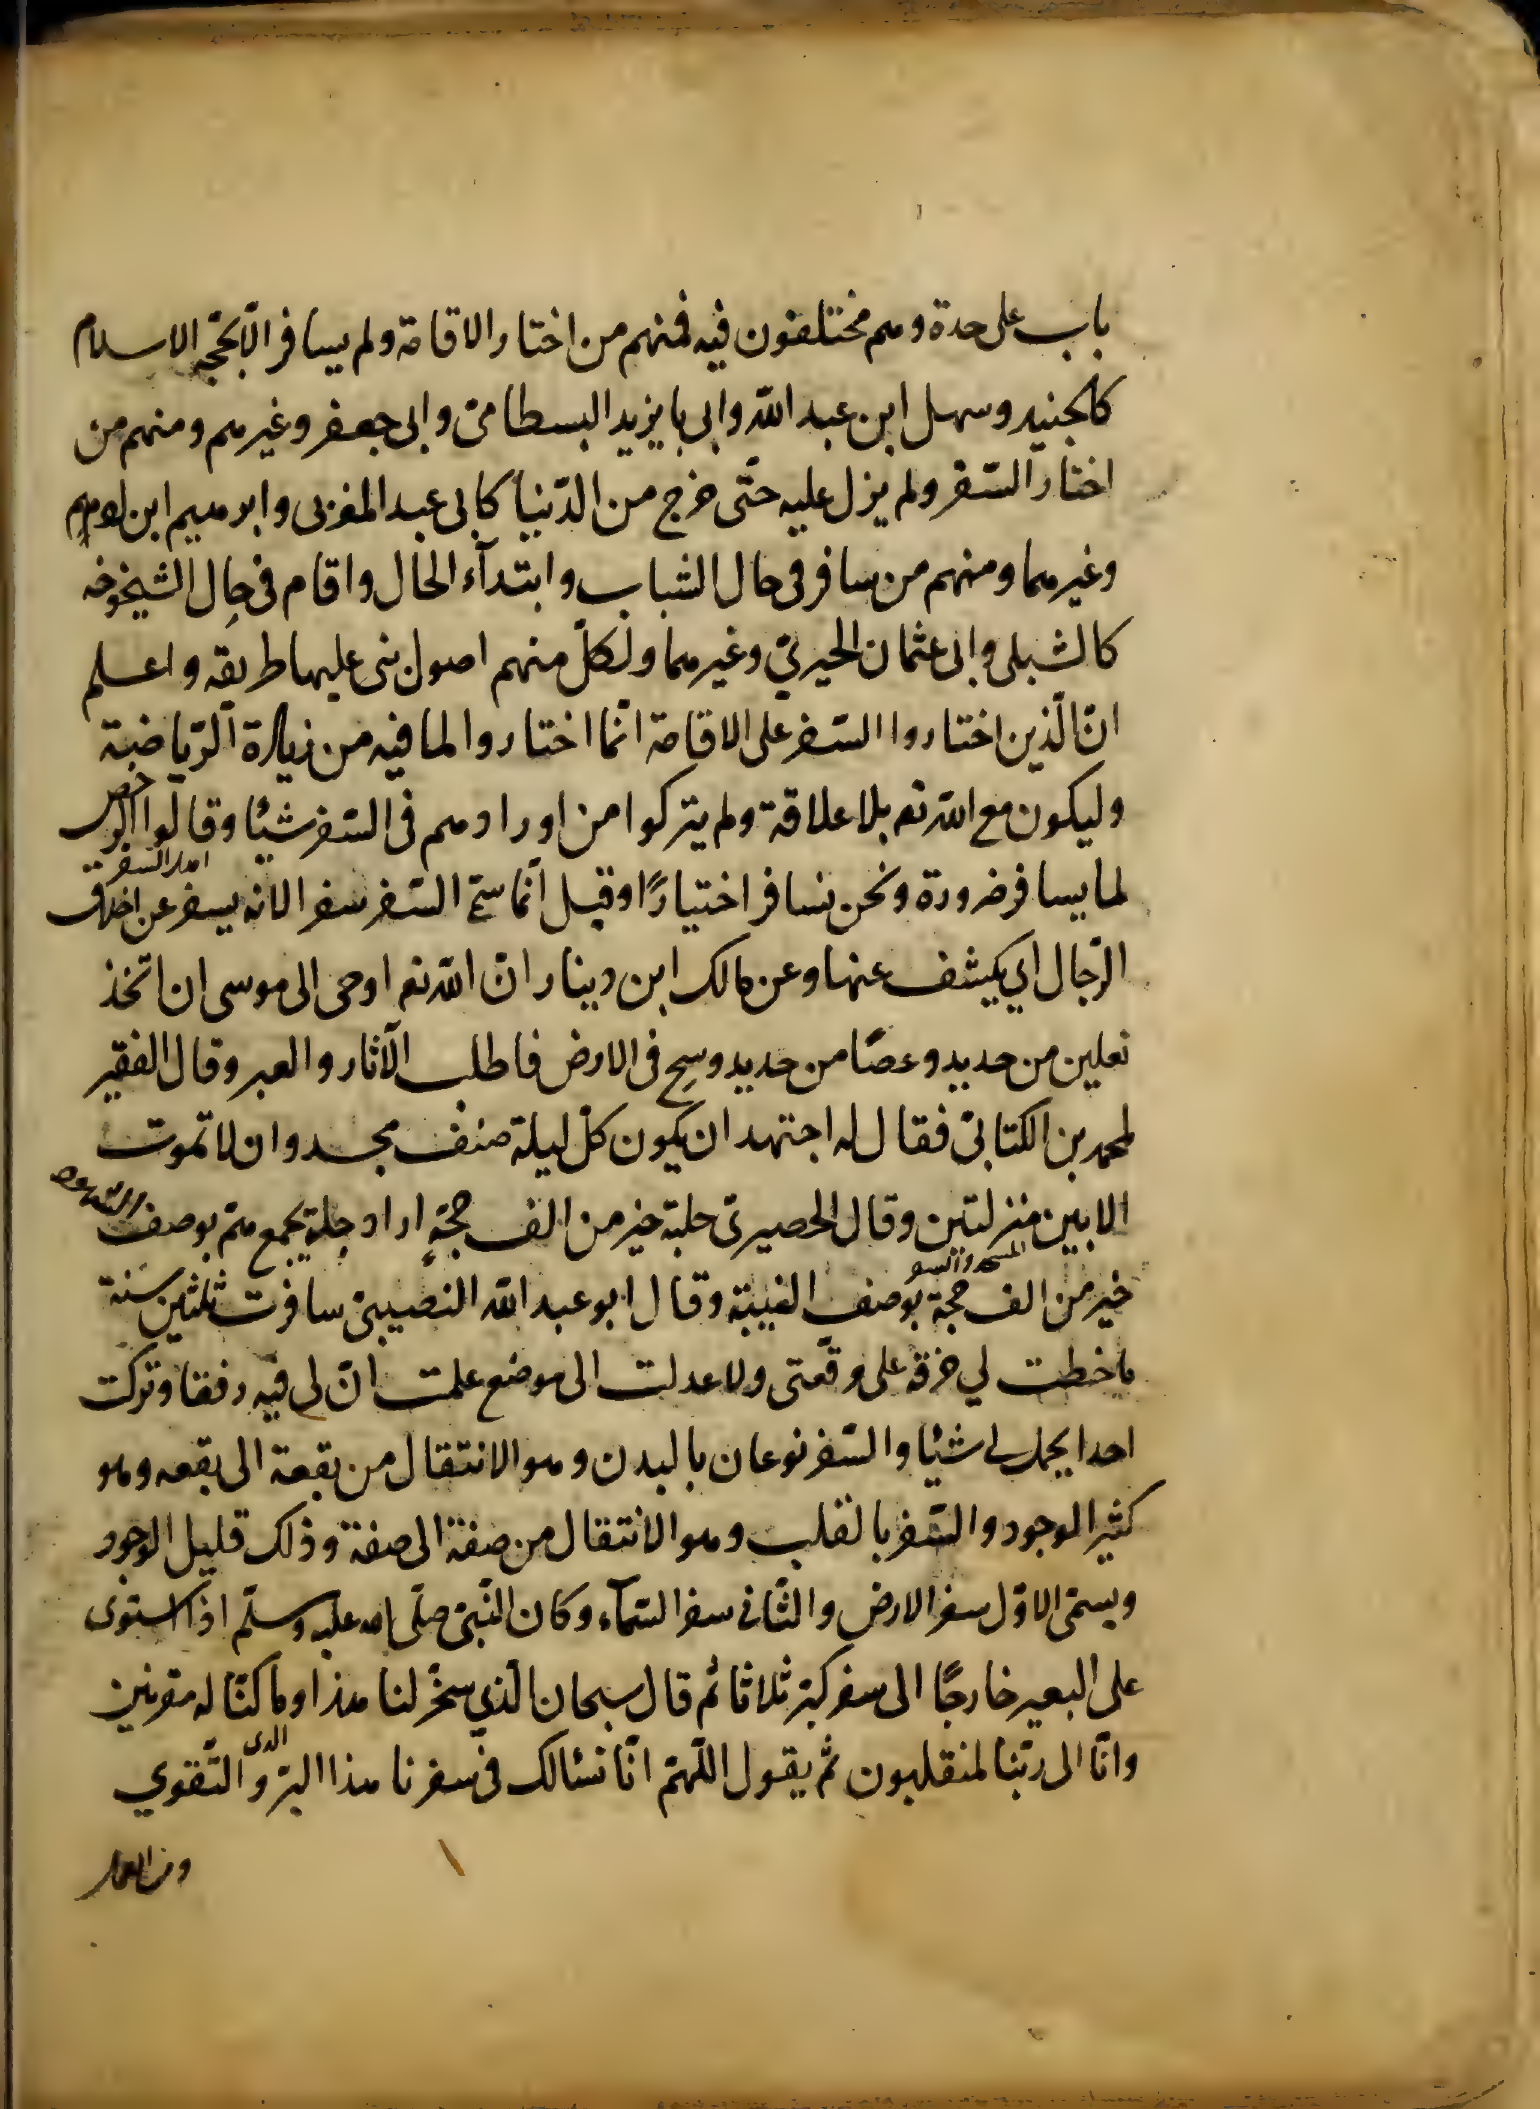 باب على حدة وهم مختلفون فيه فمنهم من اختار الاقامة ولم يسافر الّا بحجّه الاسلام
كالجنيد وسهل ابن عبد اللّه وابى بايزيد البسطامىّ وابى جعفر وغيرهم ومنهم من
اختار السّفر ولم يزل عليه حتّى خرج من الدّنيا كابى عبد المغربى وابرهيم ابن ادهم
وغيرهما ومنهم من سافر فى حال الشباب وابتدآء الحال واقام فى حال الشيخوخه
كالشبلى وابى عثمان الحيرىّ وغيرهما ولكلّ منهم اصول بنى عليها طريقه واعلم
انّ الّذين اختاروا السّفر على الاقامة انّما اختاروا لما فيه من زيادة الرّياضة
وليكون مع اللّه تع بلا علاقة ولم يتركوا من اورادهم فى السّفر شيئا وقالوا الرخص
لما يسافر ضرورة ونحن نسافر اختيارًا وقيل انّما سمّى السّفر سفرا لانه يسفر عن اخلاق
الرّجال اي يكشف عنها وعن مالك ابن دينار انّ اللّه تع اوحى الى موسى ان اتّخذ
نعلين من حديد وعصًا من حديد وسِح فى الارض فاطلب الآثار والعبر وقال الفقير
لمحمد بن الكتانىّ فقال له اجتهد ان يكون كلّ ليلة ضيف مسجد وان لا تموت
الا بين منزلتين وقال الحصيرىّ جلبة خير من الف حجّةٍ اراد جلية يجمع همّ بوصف
خير من الف حجة بوصف الغيبة وقال ابو عبد اللّه النصيبىّ سافرت ثلثين سنة
ما خطت لي خرقة على رقعتى ولا عدلت الى موضع علمت انّ لى فيه رفقا وتركت
احدا يحمل لى شيئا والسّفر نوعان بالبدن وهو الانتقال من بقعة الى بقعه وهو
كثير الموجود والسّفر بالقلب وهو الانتقال من صفة الى صفة وذلك قليل الوجود
ويسمّى الاوّل سفر الارض والثّانى سفر السّمآء وكان النّبىّ صلّى اللّه عليه وسلّم اذا استوى
على البعير خارجًا الى سفر كبّر ثلاثا ثم قال سبحان الّذي سخّر لنا هذا وما كنّا له مقرنين
وانّا الى ربّنا لمنقلبون ثمّ يقول اللّهمّ انّا نسئالك فى سفرنا هذا البرّ والتّقوي
ومن العمل